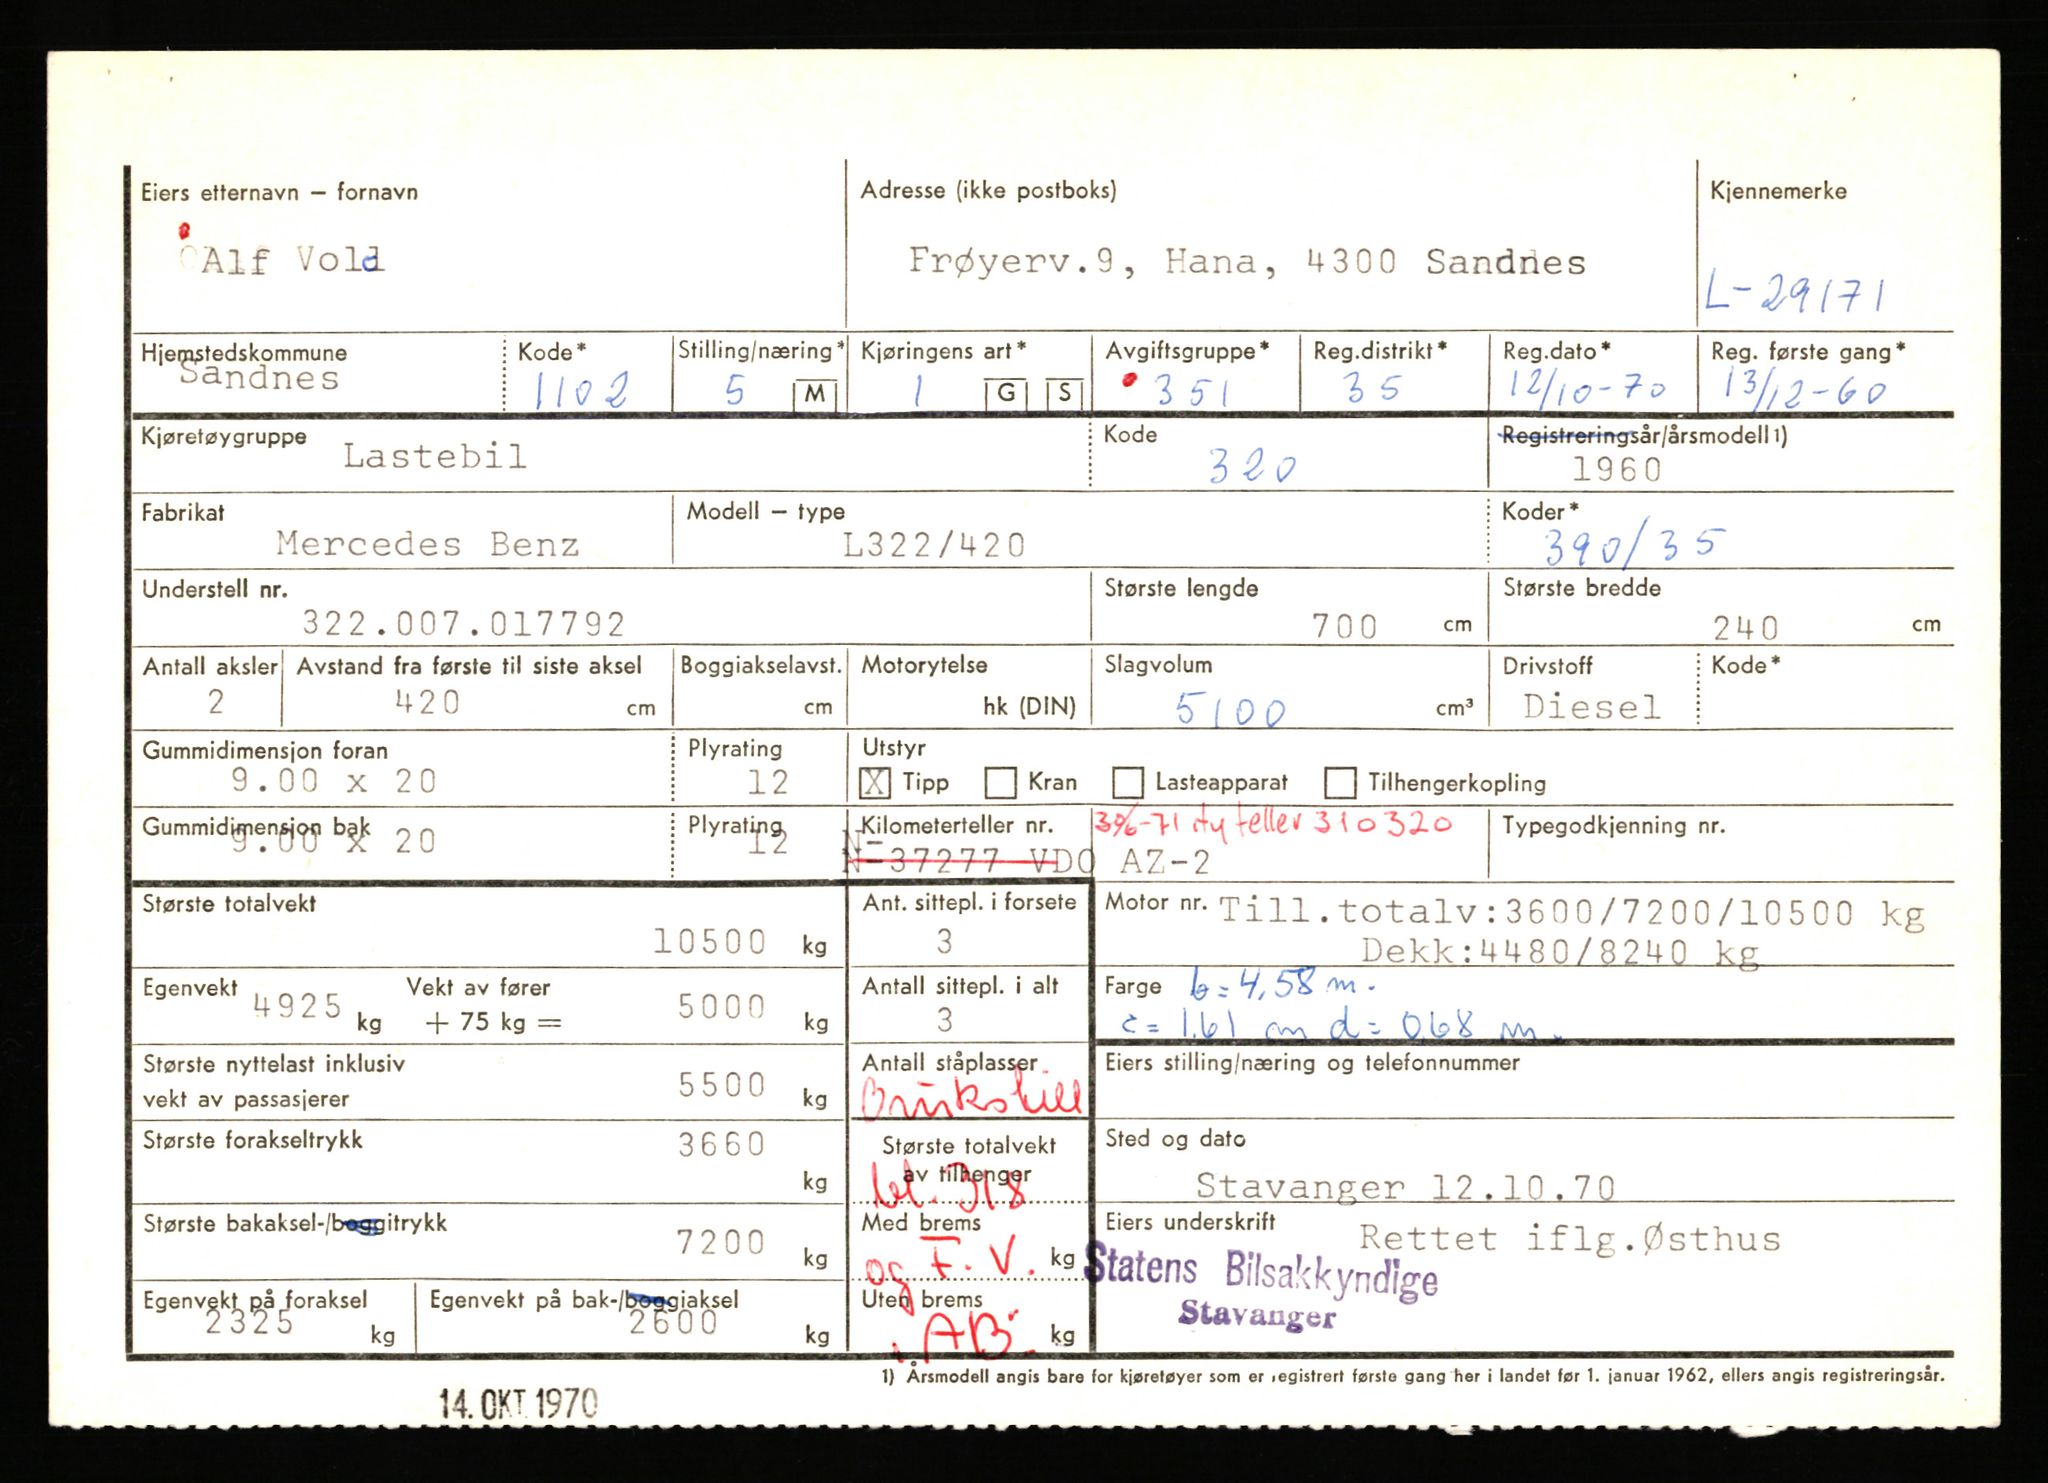 Eiers etternavn – fornavn
Alf Vold
Adresse (ikke postboks)
Frøyerv.9, Hana, 4300 Sandnes
Kjennemerke
L-29171
Hjemstedskommune
Sandnes
Kode*
1102
Stilling/næring*
5 M
Kjøringens art*
1 G S
Avgiftsgruppe*
351
Reg.distrikt*
35
Reg.dato*
12/10-70
Reg. første gang*
13/12-60
Kjøretøygruppe
Lastebil
Kode
320
Registreringsår/årsmodell 1)
1960
Fabrikat
Mercedes Benz
Modell – type
L322/420
Koder*
390/35
Understell nr.
322.007.017792
Største lengde
700 cm
Største bredde
240 cm
Antall aksler
2
Avstand fra første til siste aksel
420 cm
Boggiakselavst.
cm
Motorytelse
hk (DIN)
Slagvolum
5100 cm³
Drivstoff
Diesel
Kode*
Gummidimensjon foran
9.00 x 20
Plyrating
12
Utstyr
X Tipp Kran Lasteapparat Tilhengerkopling
Gummidimensjon bak
9.00 x 20
Plyrating
12
Kilometerteller nr.
-71 ny teller 310320
N-37277 VDO AZ-2
Typegodkjenning nr.
Største totalvekt
10500 kg
Ant. sittepl. i forsete
3
Motor nr. Till.totalv:3600/7200/10500 kg
Dekk:4480/8240 kg
Egenvekt
4925 kg
Vekt av fører
+ 75 kg =
5000 kg
Antall sittepl. i alt
3
Farge b = 4,58 m.
c = 1.61 cm d = 0.68 m.
Største nyttelast inklusiv
vekt av passasjerer
5500 kg
Antall ståplasser
Brukstill
Eiers stilling/næring og telefonnummer
Største forakseltrykk
3660
kg
Største totalvekt
av tilhenger
bl. 318
Sted og dato
Stavanger 12.10.70
Største bakaksel-/boggitrykk
7200 kg
Med brems
og F.V. kg
Eiers underskrift
Rettet iflg.Østhus
Statens Bilsakkyndige
Stavanger
Egenvekt på foraksel
2325 kg
Egenvekt på bak-/boggiaksel
2600 kg
Uten brems
AB. kg
1) Årsmodell angis bare for kjøretøyer som er registrert første gang her i landet før 1. januar 1962, ellers angis registreringsår.
14. OKT 1970